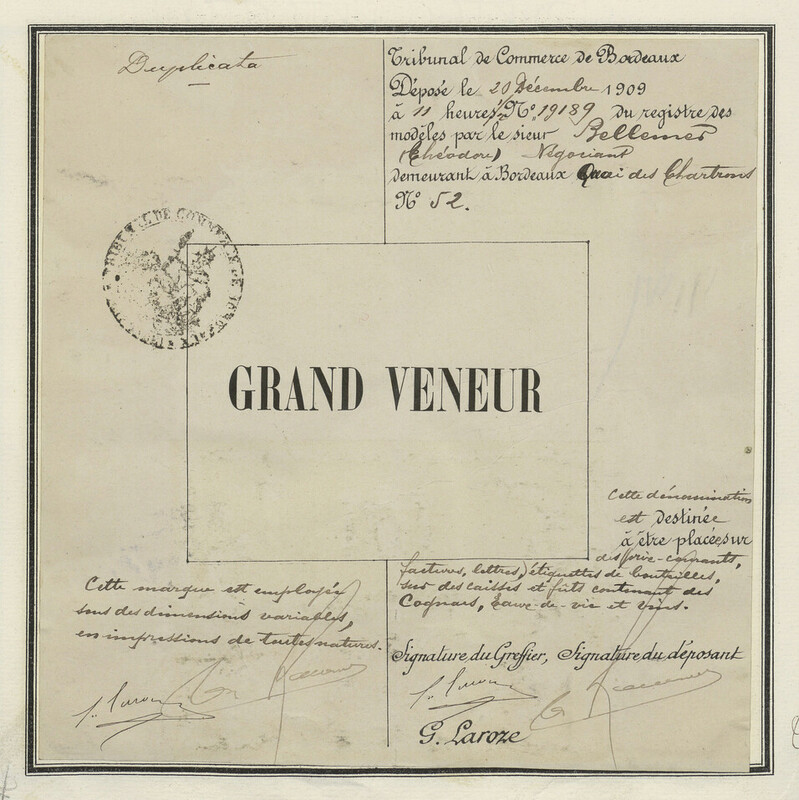 Duplicata
Tribunal de Commerce de Bordeaux
Déposé le 20 Décembre 1909
à 11 heures ½ N° 19189 du registre des
modèles par le sieur Bellemer
(Théodore) Négociant
demeurant à Bordeaux Quai des Chartrons
N° 52.
TRIBUNAL DE COMMERCE DE BORDEAUX
GRAND VENEUR
Cette dénomination
est destinée
à être placée sur
des prix-courants,
factures, lettres, étiquettes de bouteilles,
sur des caisses et fûts contenant des
Cognacs, Eaux-de-vie et vins.
Cette marque est employée
sous des dimensions variables,
en impressions de toutes natures.
Signature du Greffier, Signature du déposant
G. Laroze